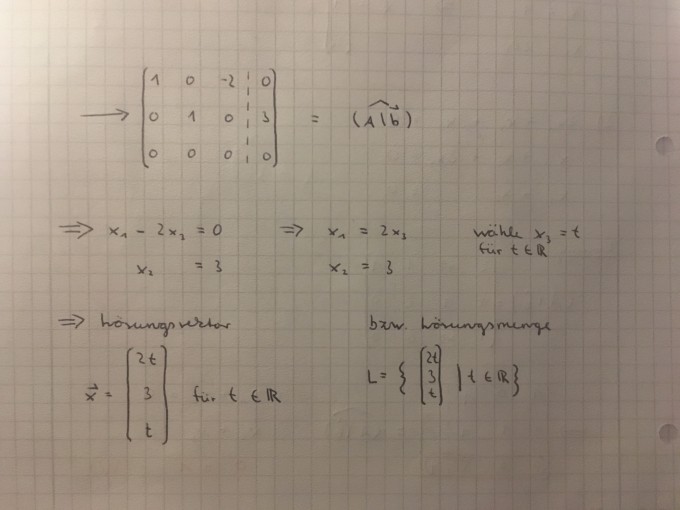 → ( 1 0 -2 | 0
0 1 0 | 3
0 0 0 | 0 ) = (A|b⃗)
⇒ x₁ - 2x₃ = 0 ⇒ x₁ = 2x₃ wähle x₃ = t
für t ∈ ℝ
x₂ = 3 x₂ = 3
⇒ Lösungsvektor bzw. Lösungsmenge
x⃗ = ( 2t
3
t ) für t ∈ ℝ
L = { ( 2t
3
t ) | t ∈ ℝ }